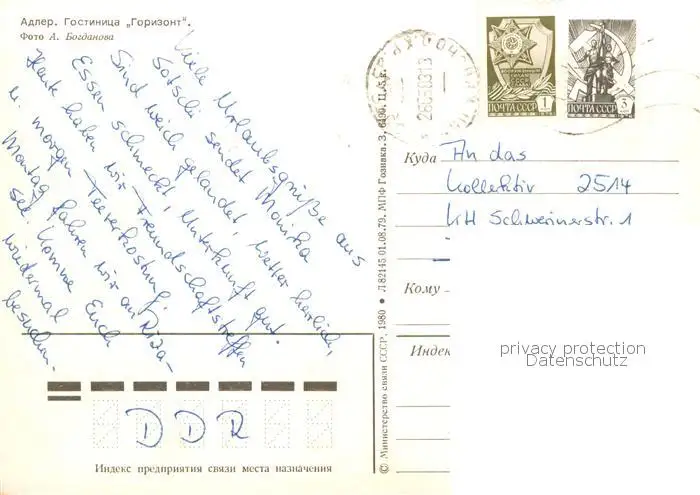 Адлер. Гостиница „Горизонт".
Фото А. Богданова
Viele Urlaubsgrüße aus
Sotschi sendet Monika
Sind weich gelandet, Wetter herrlich,
Essen schmeckt, Unterkunft gut.
Heute haben wir Freundschaftstreffen
u. morgen Teeverkostung.
Montag fahren wir an Riza-
See. Komme Euch
wiedermal
besuchen.
ПОЧТА СССР 1
ПОЧТА СССР 3
Куда An das
Kollektiv 2514
KH Schwerinerstr. 1
Кому
Индек
privacy protection
Datenschutz
DDR
Индекс предприятия связи места назначения
© Министерство связи СССР, 1980 ● Л 82145 01.08.79. МПФ Гознака. З. 6490. Ц. 5 к.